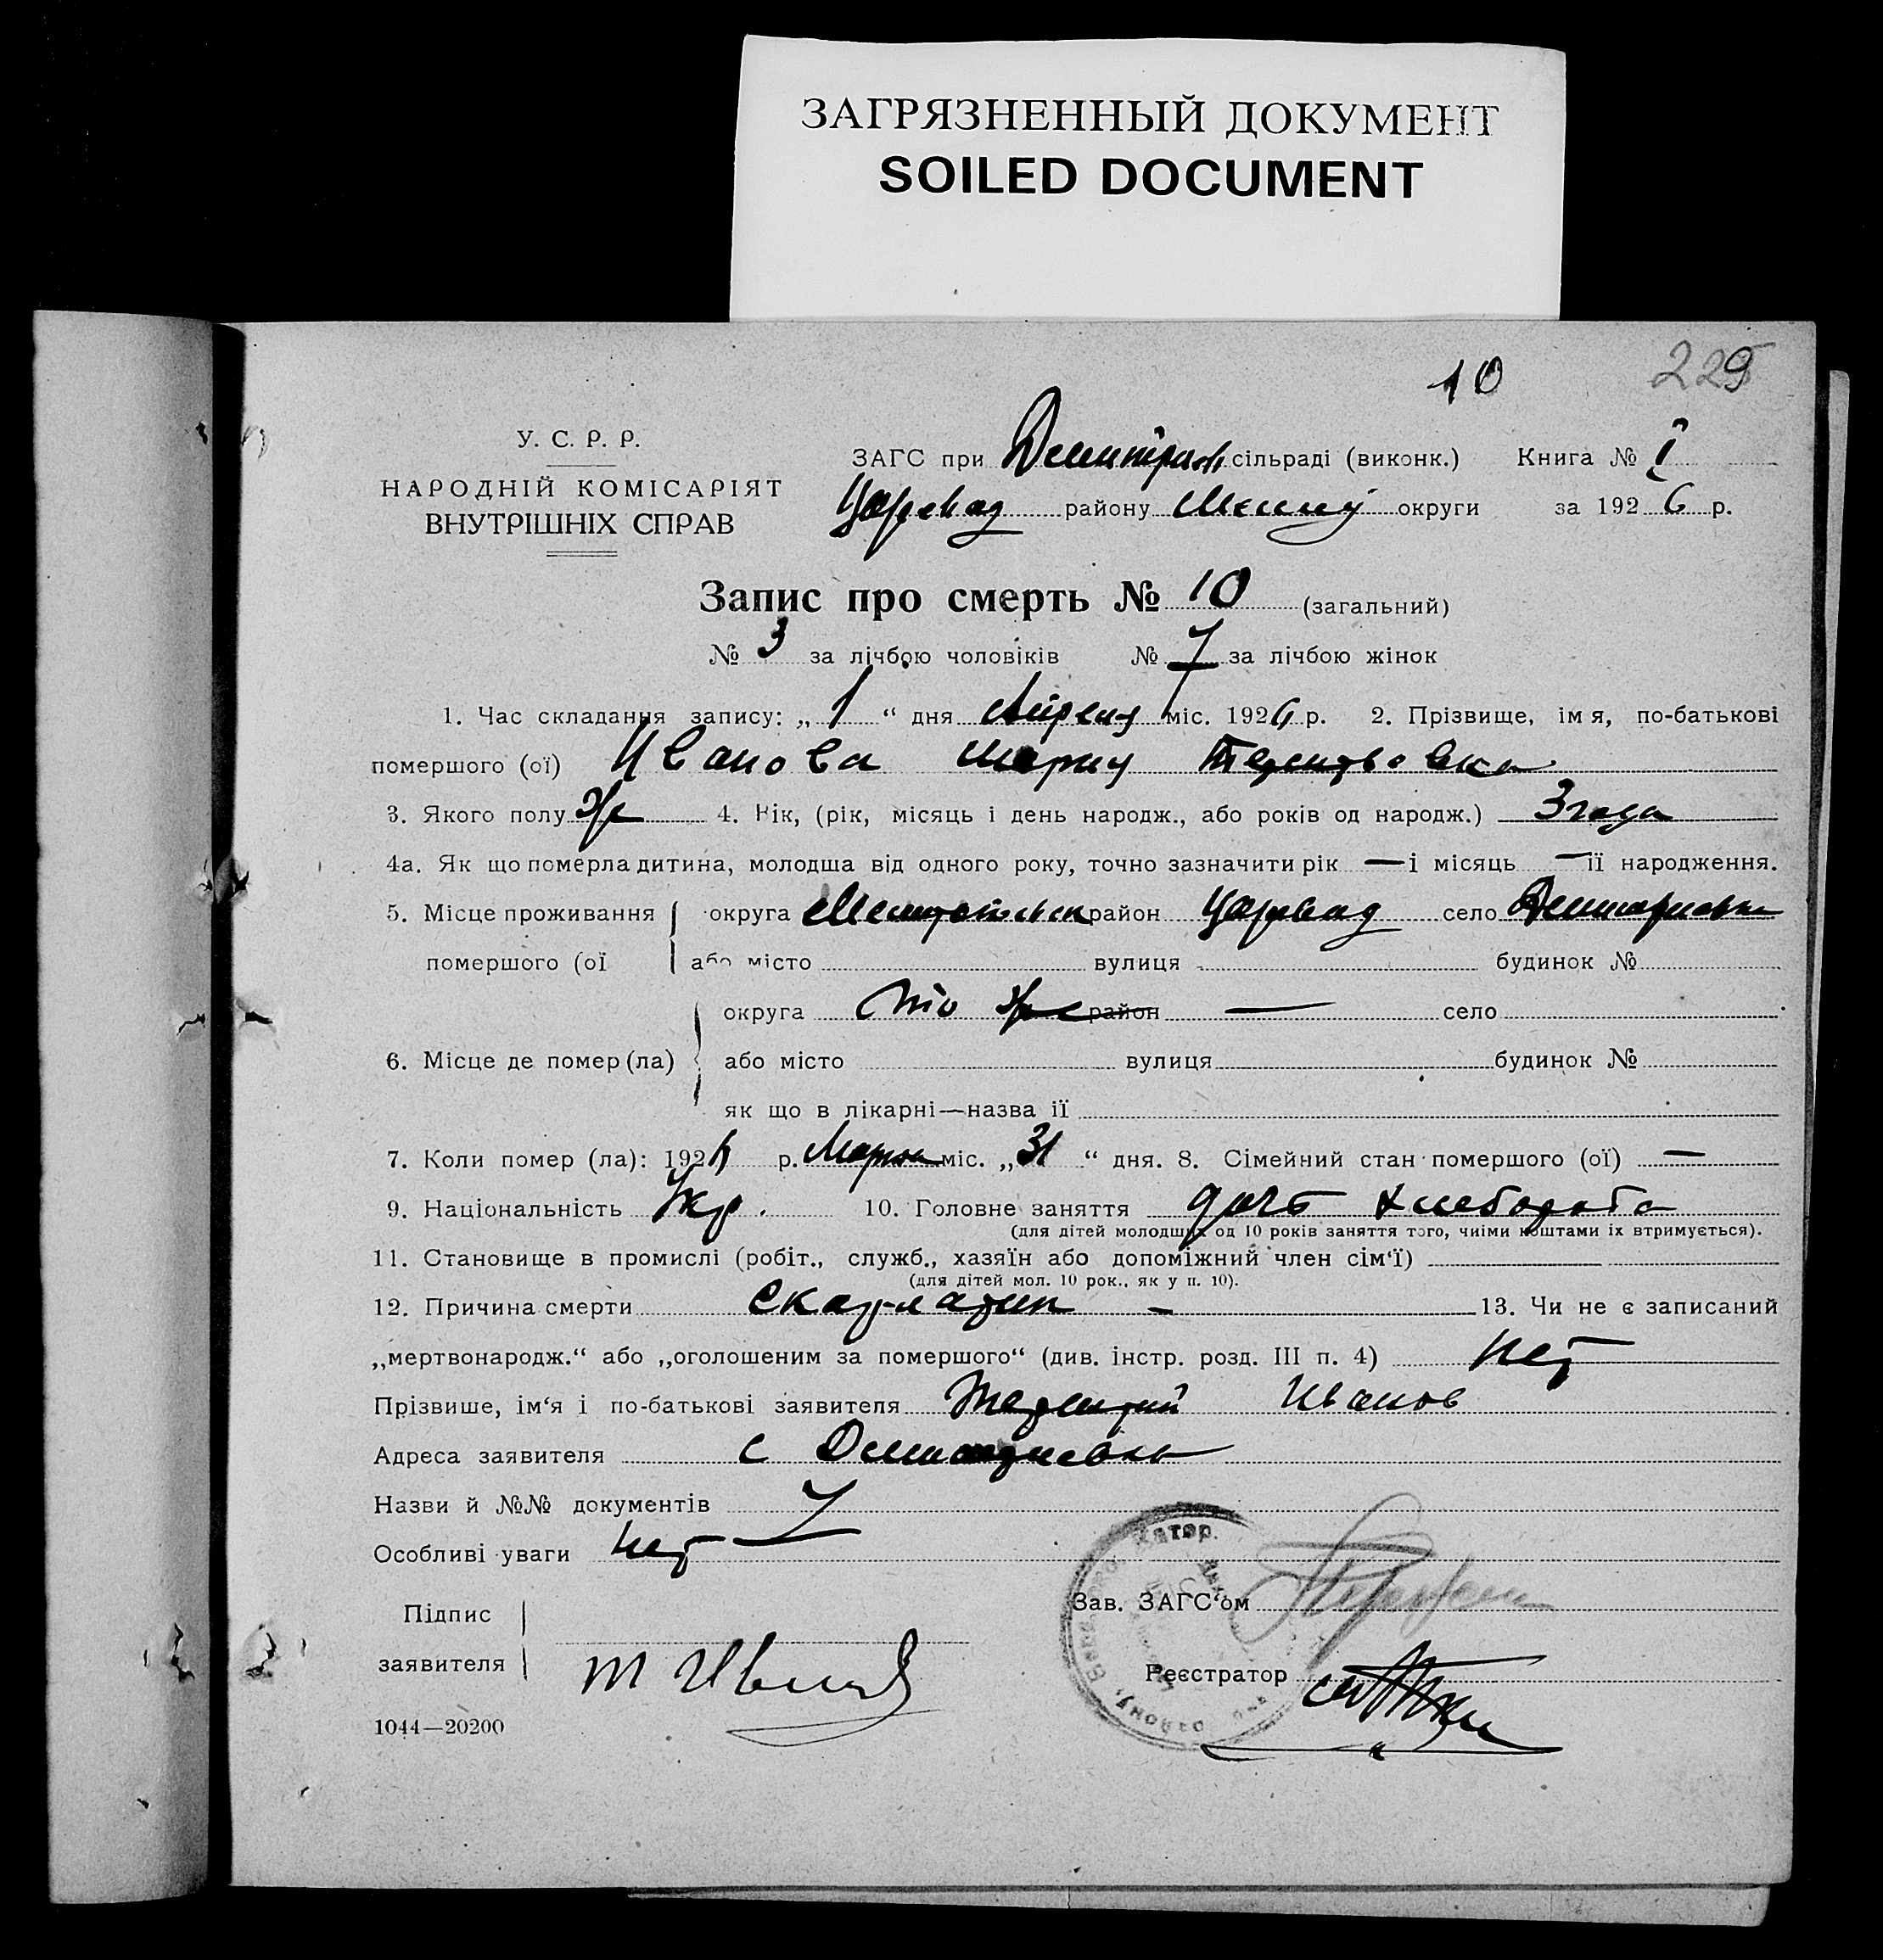 ЗАГРЯЗНЕННЫЙ ДОКУМЕНТ
SOILED DOCUMENT
10 229
У. С. Р. Р.
НАРОДНІЙ КОМІСАРІЯТ
ВНУТРІШНІХ СПРАВ
ЗАГС при Димитров сільраді (виконк.) Книга № I
району округи за 1926 р.
Запис про смерть № 10 (загальний)
№ 3 за лічбою чоловіків № 7 за лічбою жінок
1. Час складання запису: „1“ дня Апреля міс. 1926 р. 2. Прізвище, імя, по-батькові
помершого (ої) Иванова Мария Терентьевна
3. Якого полу ж 4. Вік, (рік, місяць і день народж., або років од народж.) 3 года
4а. Як що померла дитина, молодша від одного року, точно зазначити рік — і місяць — її народження.
5. Місце проживання округа район село
помершого (ої або місто вулиця будинок №
округа То же район — село
6. Місце де помер (ла) або місто вулиця будинок №
як що в лікарні—назва її
7. Коли помер (ла): 1926 р. Марта міс. „31“ дня. 8. Сімейний стан помершого (ої) —
9. Національність Укр. 10. Головне заняття дочь хлебороба
(для дітей молодших од 10 років заняття того, чиїми коштами їх втримується).
11. Становище в промислі (робіт., служб., хазяїн або допоміжний член сім‘ї)
(для дітей мол. 10 рок., як у п. 10).
12. Причина смерти скарлатин — 13. Чи не є записаний
„мертвонародж.“ або „оголошеним за помершого“ (див. інстр. розд. III п. 4) нет
Прізвише, ім‘я і по-батькові заявителя Терентий Иванов
Адреса заявителя с
Назви й №№ документів
Особливі уваги нет
Підпис
заявителя Т Иванов
Зав. ЗАГС‘ом
Реєстратор
1044—20200